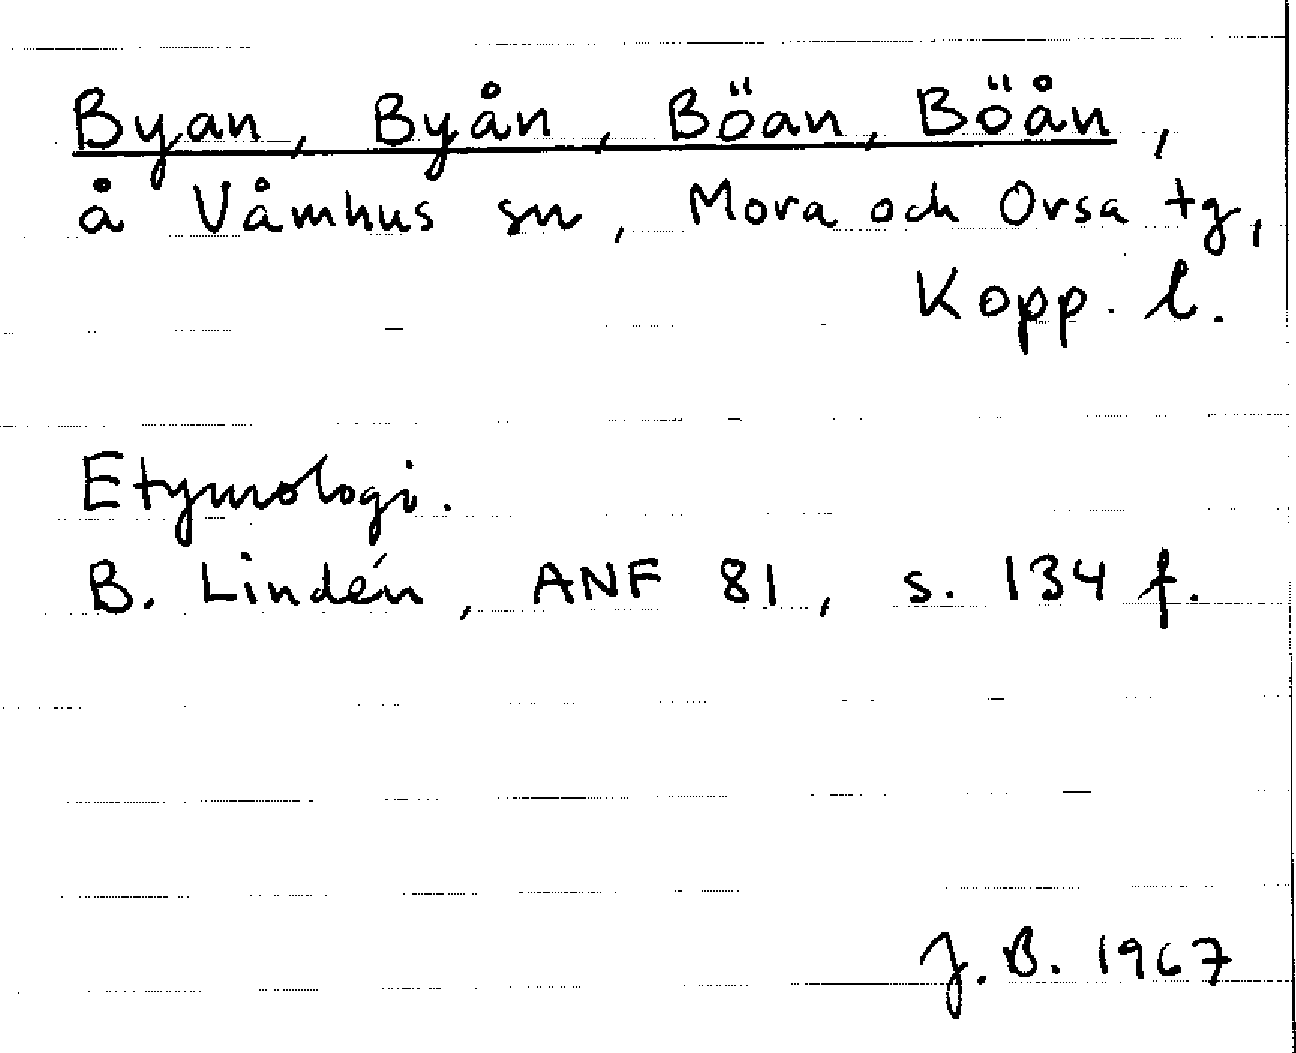 Byan, Byån, Böan, Böån,
å Våmhus sn, Mora och Orsa tg,
Kopp. l.
Etymologi.
B. Lindén, ANF 81, s. 134 f.
J. B. 1967